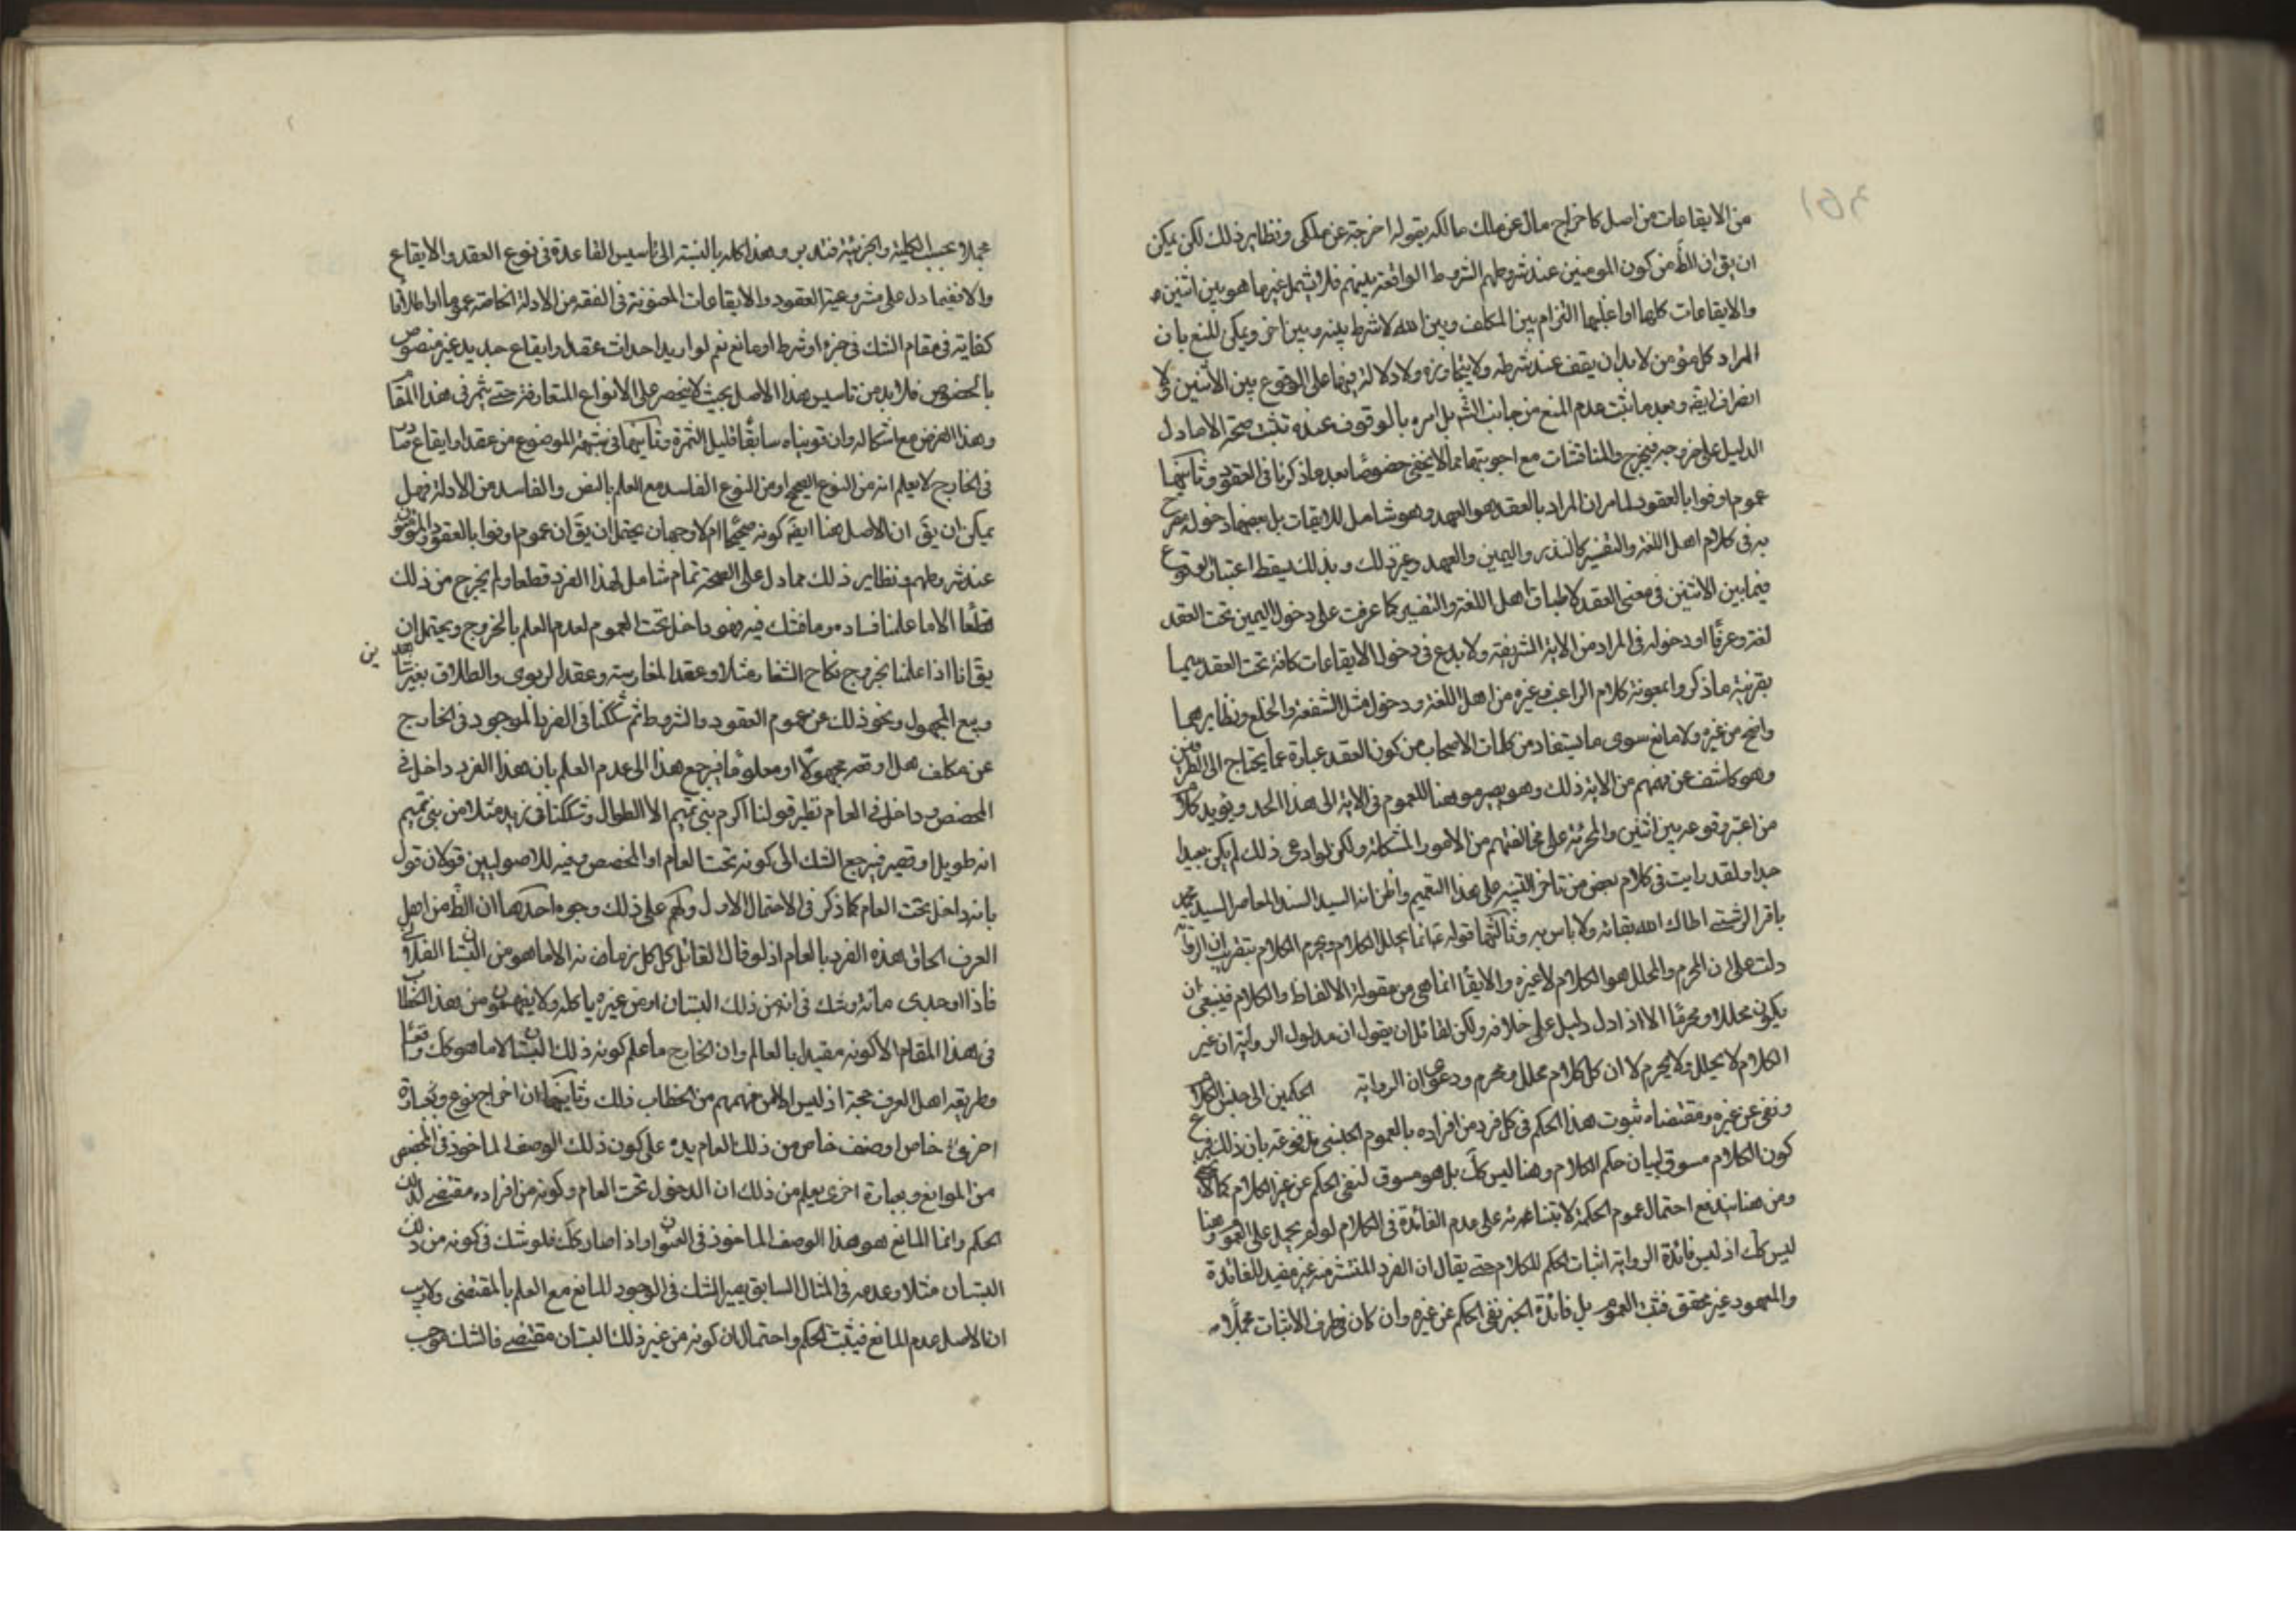 من الايقاعات من اصل كاخراج مال عن ملك مالكه بقوله اخرجته عن ملكى ونظاير ذلك لكن يمكن
ان يق ان الظ من كون المومنين عند شروطهم الشروط الواقعة بينهم فلا يشمل غير ما هو بين اثنين
والايقاعات كلها او اغلبها التزام بين المكلف وبين الله لا شرط بينه وبين اخر ويمكن للمنع بان
المراد كل مؤمن لا بد ان يقف عند شرطه ولا يتجاوزه ولا دلالة فيها على الوقوع بين الاثنين
انصراف ايضه وبعد ما ثبت عدم المنع من جانب الش بل امره بالوقوف عنده تثبت صحته الا ما دل
الدليل على خروجه فيخرج والمناقشات مع اجوبتها مما لا يخفى خصوصًا بعد ما ذكرنا فى العقود وثانيهما
عموم اوفوا بالعقود لما مر ان المراد بالعقد هو العهد وهو شامل للايقات بل بعضها دخوله
به فى كلام اهل اللغة والتفسير كالنذر واليمين والعهد وغير ذلك وبذلك يسقط اعتبار الوقوع
فيما بين الاثنين فى معنى العقد لاطباق اهل اللغة والتفسير كما عرفت على دخول اليمين تحت العقد
لغة وعرفًا او دخوله فى المراد من الاية الشريفة ولا بدع فى دخول الايقاعات كافة تحت العقد سيما
بقرينة ما ذكر وا بمعونة كلام الراغب وغيره من اهل اللغة ودخول مثل الشفعة والخلع ونظايرهما
واضح من غيره ولا مانع سوى ما يستفاد من كلمات الاصحاب من كون العقد عبارة عما يحتاج الى الطرفين
وهو كاشف عن فهمهم من الاية ذلك وهو يصير موهنا للعموم فى الاية الى هذا الحد ويؤيد كلام
من اعتبر وقوعه بين اثنين والجرئة على مخالفتهم من الامور المشكلة ولكن لو ادعى ذلك لم يكن بعيدا
جدا ولقد رايت فى كلام بعض من تاخر التنبيه على هذا التعميم واظن انه السيد السند المعاصر السيد محمد
باقر الرشتى اطال الله بقائه ولا باس به وثالثها قوله ع انما يحلل الكلام ويحرم الكلام بتقريب ان الرواية
دلت على ان المحرم والمحلل هو الكلام لا غيره والايقا انما هى من مقولة الالفاظ والكلام فينبغى ان
يكون محللا ومحرمًا الا اذا دل دليل على خلافه ولكن لقائل ان يقول ان مدلول الرواية ان غير
الكلام لا يحلل ولا يحرم لا ان كل كلام محلل ومحرم ودعوى ان الرواية الحكمين الى جنس الكلام
ونفى عن غيره ومقتضاه ثبوت هذا الحكم فى كل فرد من افراده بالعموم الجنسى مدفوعة بان ذلك فرع
كون الكلام مسوق لبيان حكم الكلام وهنا ليس كك بل هو مسوق لنفى الحكم عن غير الكلام
ومن هنا يندفع احتمال عموم الحكمة لابتنائه على عدم الفائدة فى الكلام لو لم يحمل على العموم وهنا
ليس كك اذ ليس فائدة الرواية اثبات الحكم للكلام حتى يقال ان الفرد المنتشر منه غير مفيد للفائدة
والمعهود غير محقق فثبت العموم بل فائدة الخبر نفى الحكم عن غيره وان كان فى طرف الاثبات مجملًا
مجملا بحسب الكلية والجزئية فتدبر وهذا كله بالنسبة الى تاسيس القاعدة فى نوع العقد والايقاع
والا ففيما دل على مشروعية العقود والايقاعات المعنونة فى الفقه من الادلة الخاصة عموما او اطلاقا
كفاية فى مقام الشك فى جزء او شرط او مانع نعم لو اريد احداث عقد او ايقاع جديد غير منصوص
بالخصوص فلا بد من تاسيس هذا الاصل بحيث لا ينحصر على الانواع المتعارفة حتى يثمر فى هذا المقام
وهذا الفرض مع اشكاله وان قويناه سابقًا قليل الثمرة وثانيهما فى شبهة الموضوع من عقد او ايقاع صادر
فى الخارج لا يعلم انه من النوع الصحيح او من النوع الفاسد مع العلم بالنص والفاسد من الادلة فهل
يمكن ان يق ان الاصل هنا ايضه كونه صحيحًا ام لا وجهان يحتمل ان يق ان عموم اوفوا بالعقود والمؤمنون
عند شروطهم ونظاير ذلك مما دل على الصحة تمام شامل لهذا الفرد قطعا ولم يخرج من ذلك
قطعًا الا ما علمنا فساده وما نشك فيه فهو داخل تحت العموم لعدم العلم بالخروج ويحتمل ان
يق انا اذا علمنا بخروج نكاح الشغار مثلا وعقد المغارسة وعقد الربوى والطلاق بغير شاهدين
وبيع المجهول ونحو ذلك عن عموم العقود والشروط ثم شككنا فى الفرد الموجود فى الخارج
عن مكلف هل اوقعه مجهولًا او معلومًا فيرجع هذا الى عدم العلم بان هذا الفرد داخل فى
المخصص او داخل فى العام نظير قولنا اكرم بنى تميم الا الطوال وشككنا فى زيد مثلا من بنى تميم
انه طويل او قصير فيرجع الشك الى كونه تحت العام او المخصص وفيه للاصوليين قولان قول
بانه داخل تحت العام كما ذكر فى الاحتمال الاول ولهم على ذلك وجوه احدها ان الظ من اهل
العرف الحاق هذه الفرد بالعام اذ لو قال القائل كل كل رمانة الا ما هو من البستان الفلانى
فاذا وجدى مانة وشك فى انه من ذلك البستان او من غيره ياكله ولا يفهمون من هذا الخطاب
فى هذا المقام الا كونه مقيدا بالعالم وان الخارج ما علم كونه ذلك البستان لا ما هو كك واقعًا
وطريقة اهل العرف حجة اذ ليس الا من فهمهم من الخطاب ذلك وثانيها ان اخراج نوع وبعبارة
اخرى خاص او صنف خاص من ذلك العام يدل على كون ذلك الوصف الماخوذ فى المخصص
من الموانع وبعبارة اخرى يعلم من ذلك ان الدخول تحت العام وكونه من افراده مقتضى لذلك
الحكم وانما المانع هو هذا الوصف الماخوذ فى العنوان واذا صار كك فلو شك فى كونه من ذلك
البستان مثلا وعدمه فى المثال السابق يصير الشك فى الوجود المانع مع العلم بالمقتضى ولا ريب
ان الاصل عدم المانع فيثبت الحكم واحتمال ان كونه من غير ذلك البستان مقتضى فالشك موجب